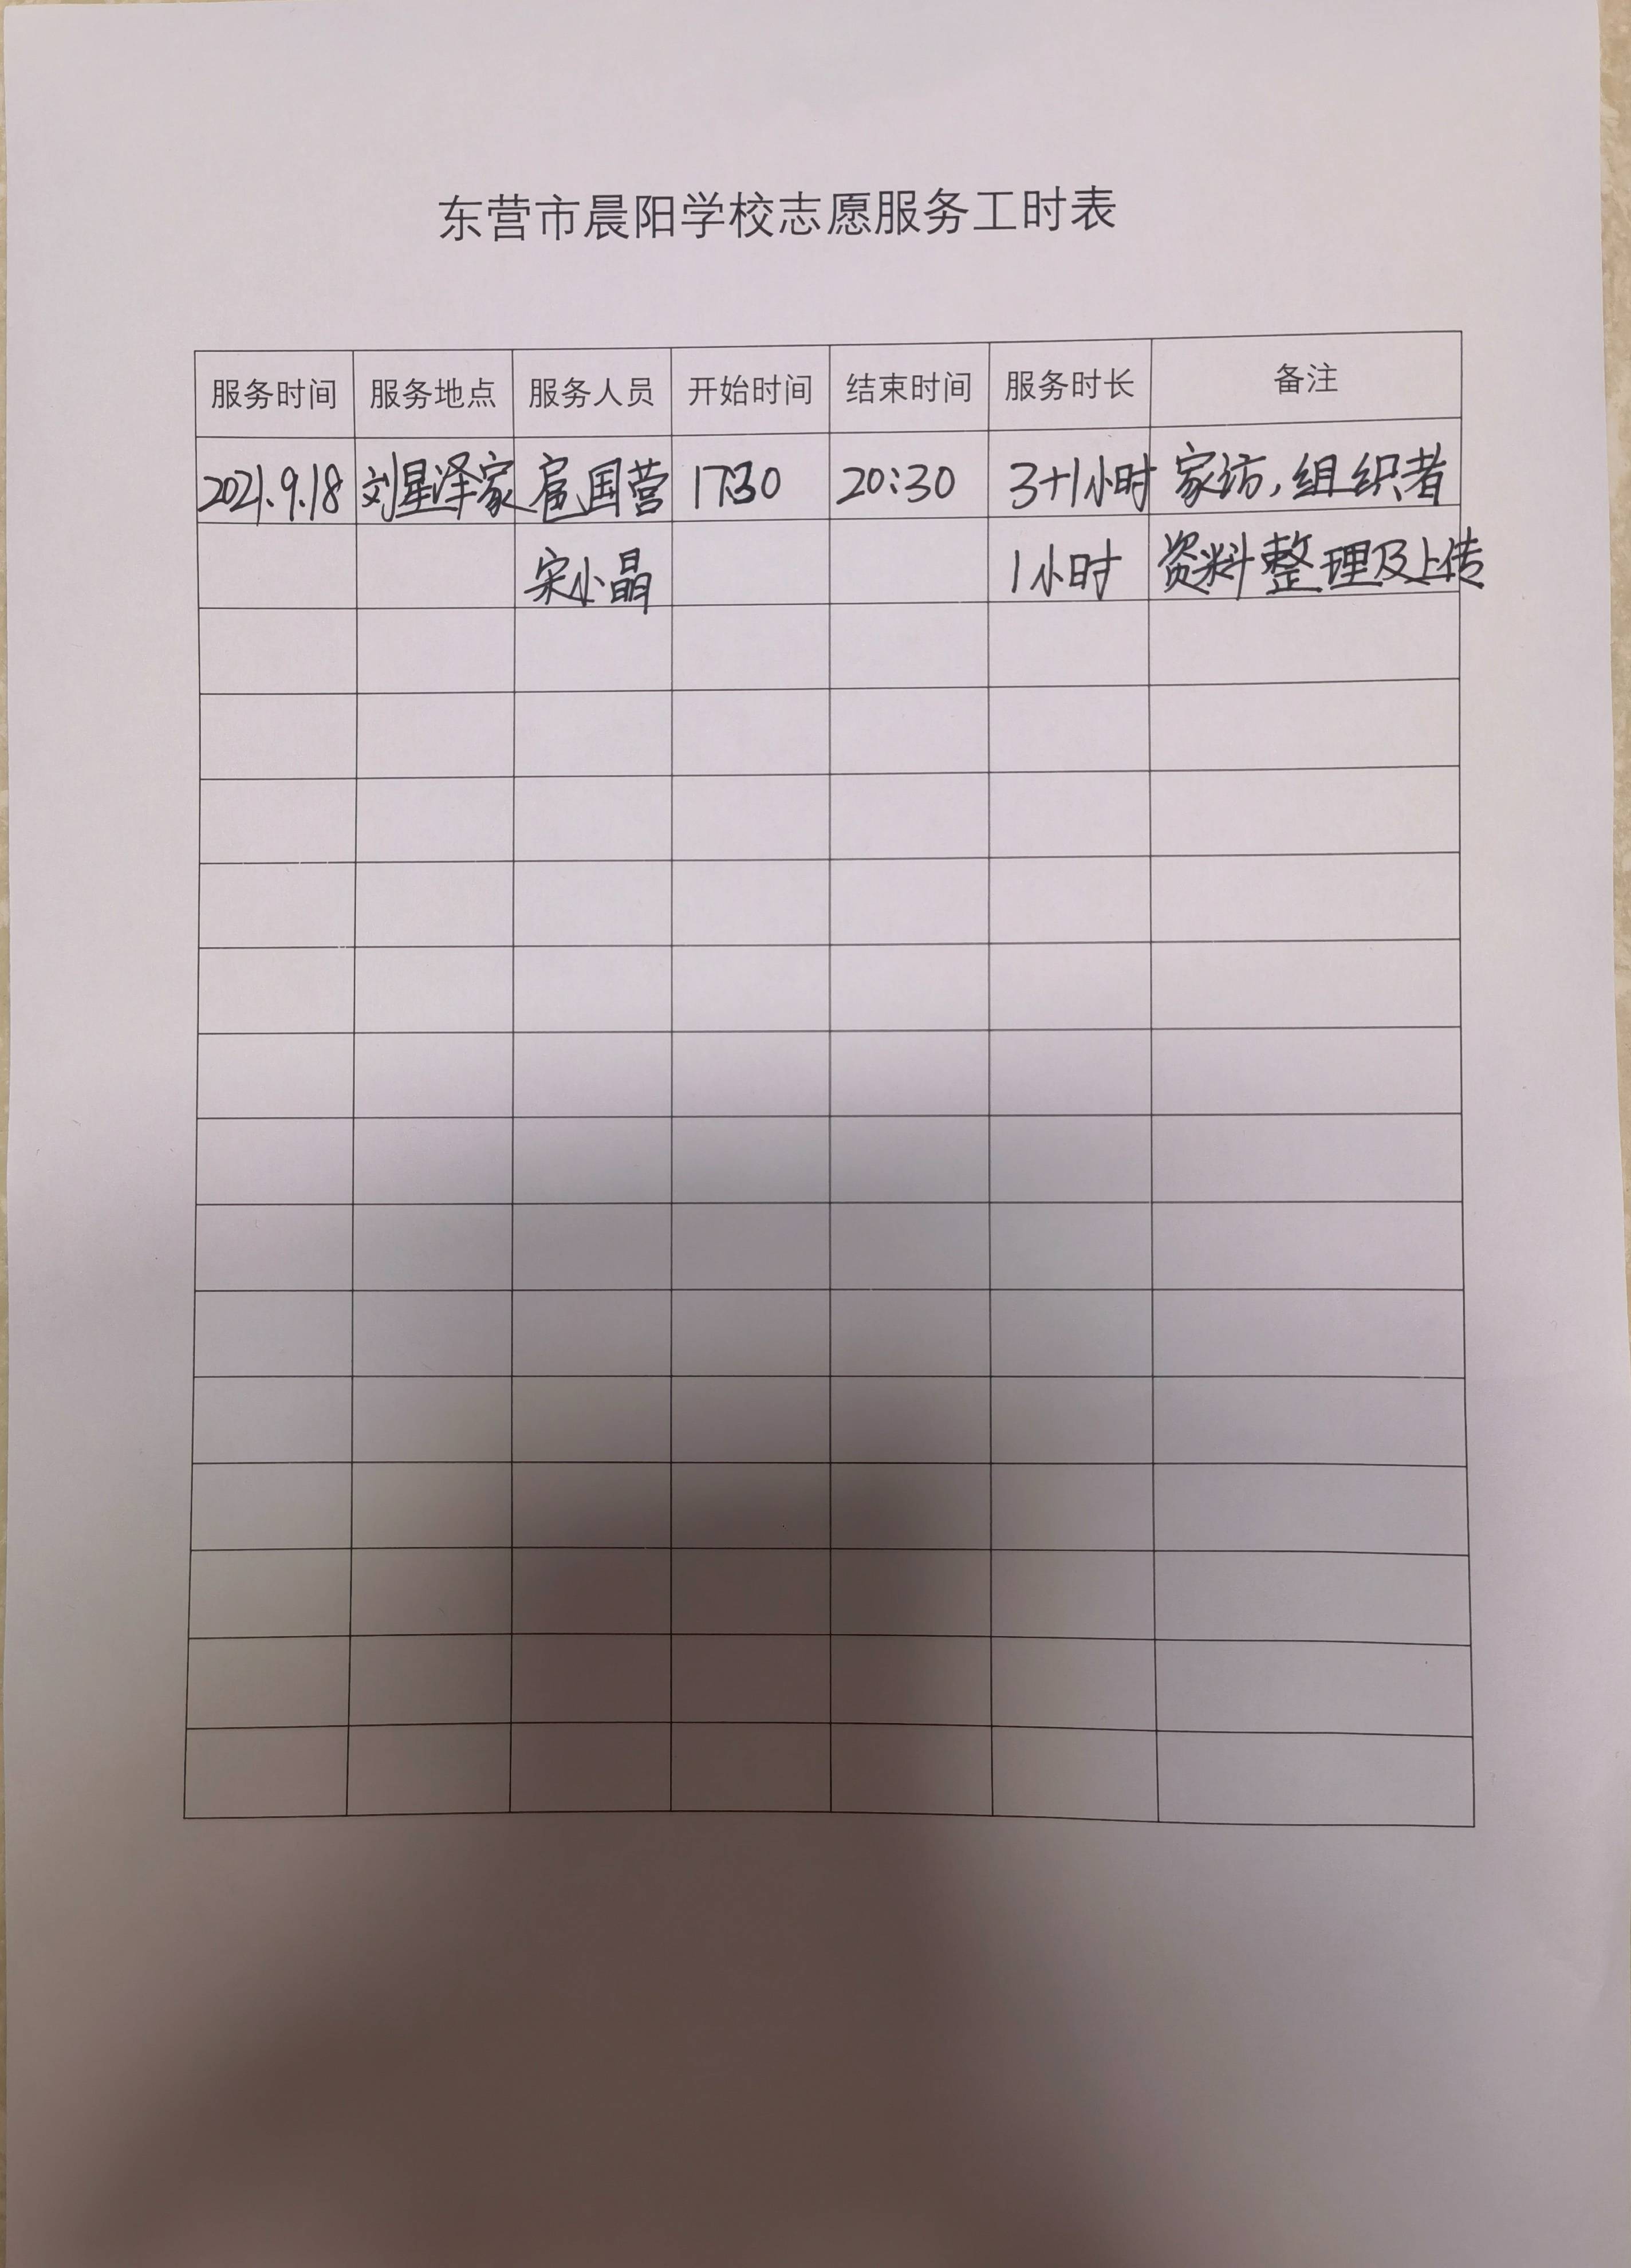 东营市晨阳学校志愿服务工时表
服务时间 服务地点 服务人员 开始时间 结束时间 服务时长 备注
2021.9.18 刘星泽家 扈国营 17:30 20:30 3+1小时 家访,组织者
宋小晶 1小时 资料整理及上传